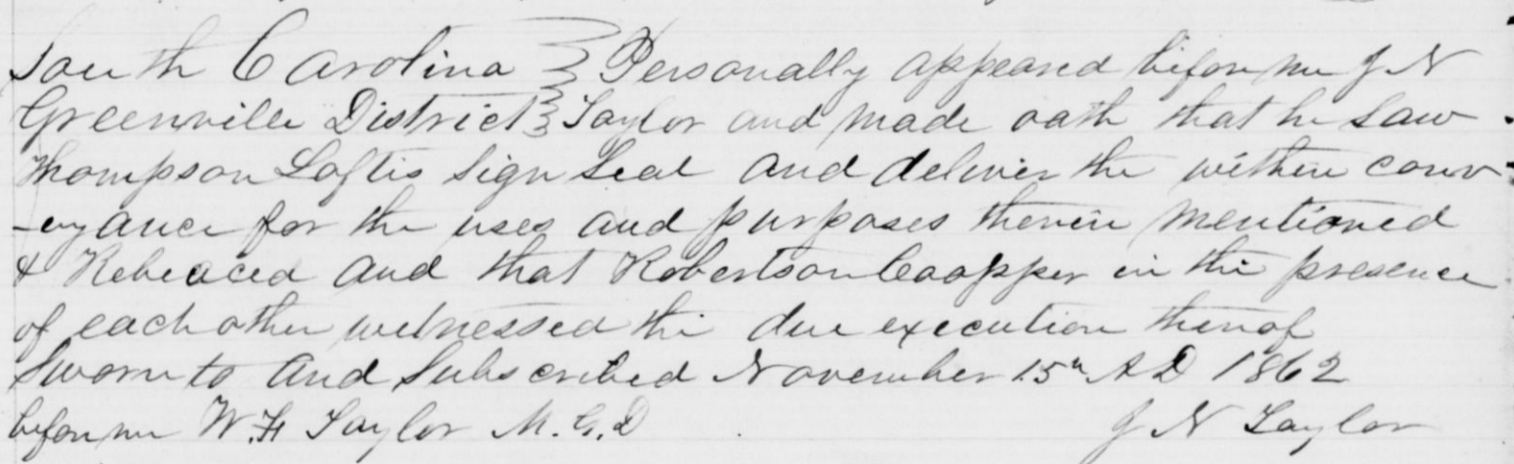 South Carolina } Personally appeared before me J N
Greenville District } Taylor and made oath that he saw
Thompson Loftis sign seal and deliver the within conv
-eyance for the uses and purposes therein mentioned
& and that Robertson Coopper in the presence
of each other witnessed the due execution thereof
Sworn to and Subscribed November 15th A D 1862
before me W. H Taylor M. G. D J N Taylor